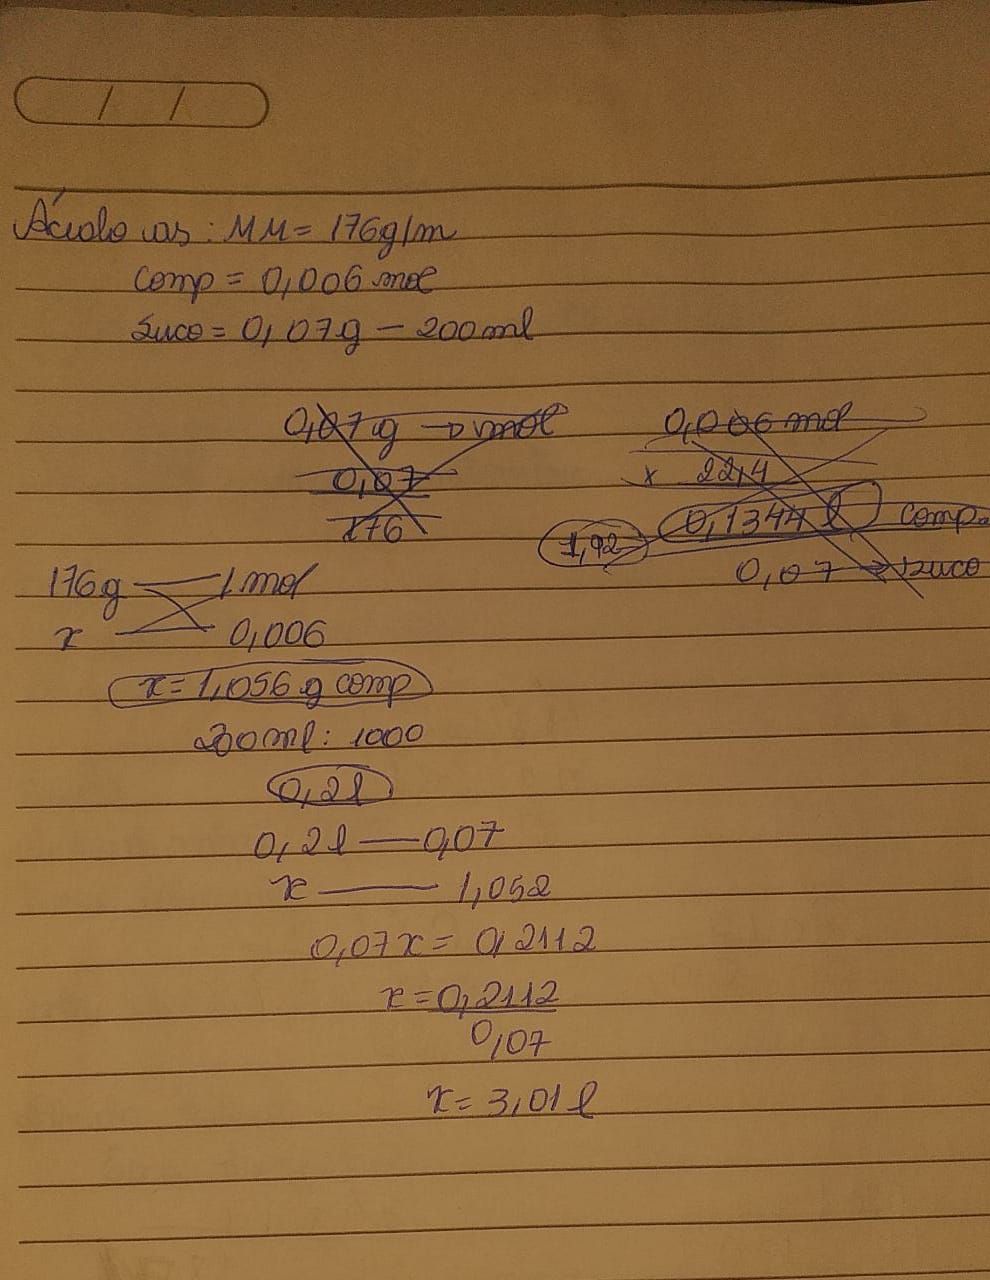 / /
Ácido as: MM= 176g/m
Comp = 0,006 mol
Suco = 0,07g - 200ml
0,07g → mol 0,006 mol
0,07 x 22,4
176 1,92 0,1344 l comp.
0,07 → suco
176g — 1 mol
x — 0,006
x= 1,056 g comp
200ml: 1000
0,2l
0,2l — 0,07
x — 1,052
0,07x = 0,2112
x = 0,2112
0,07
x = 3,01 l